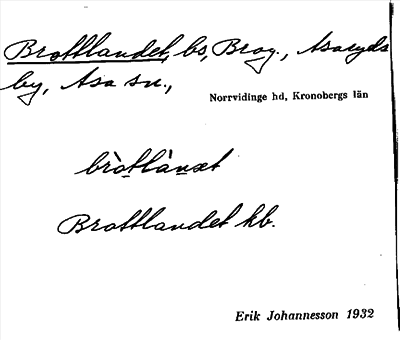 Brottlandet, bs, Brog., Asaryds
by, Asa sn.,
Norrvidinge hd, Kronobergs län
bròttlànxt
Brottlandet kb.
Erik Johannesson 1932